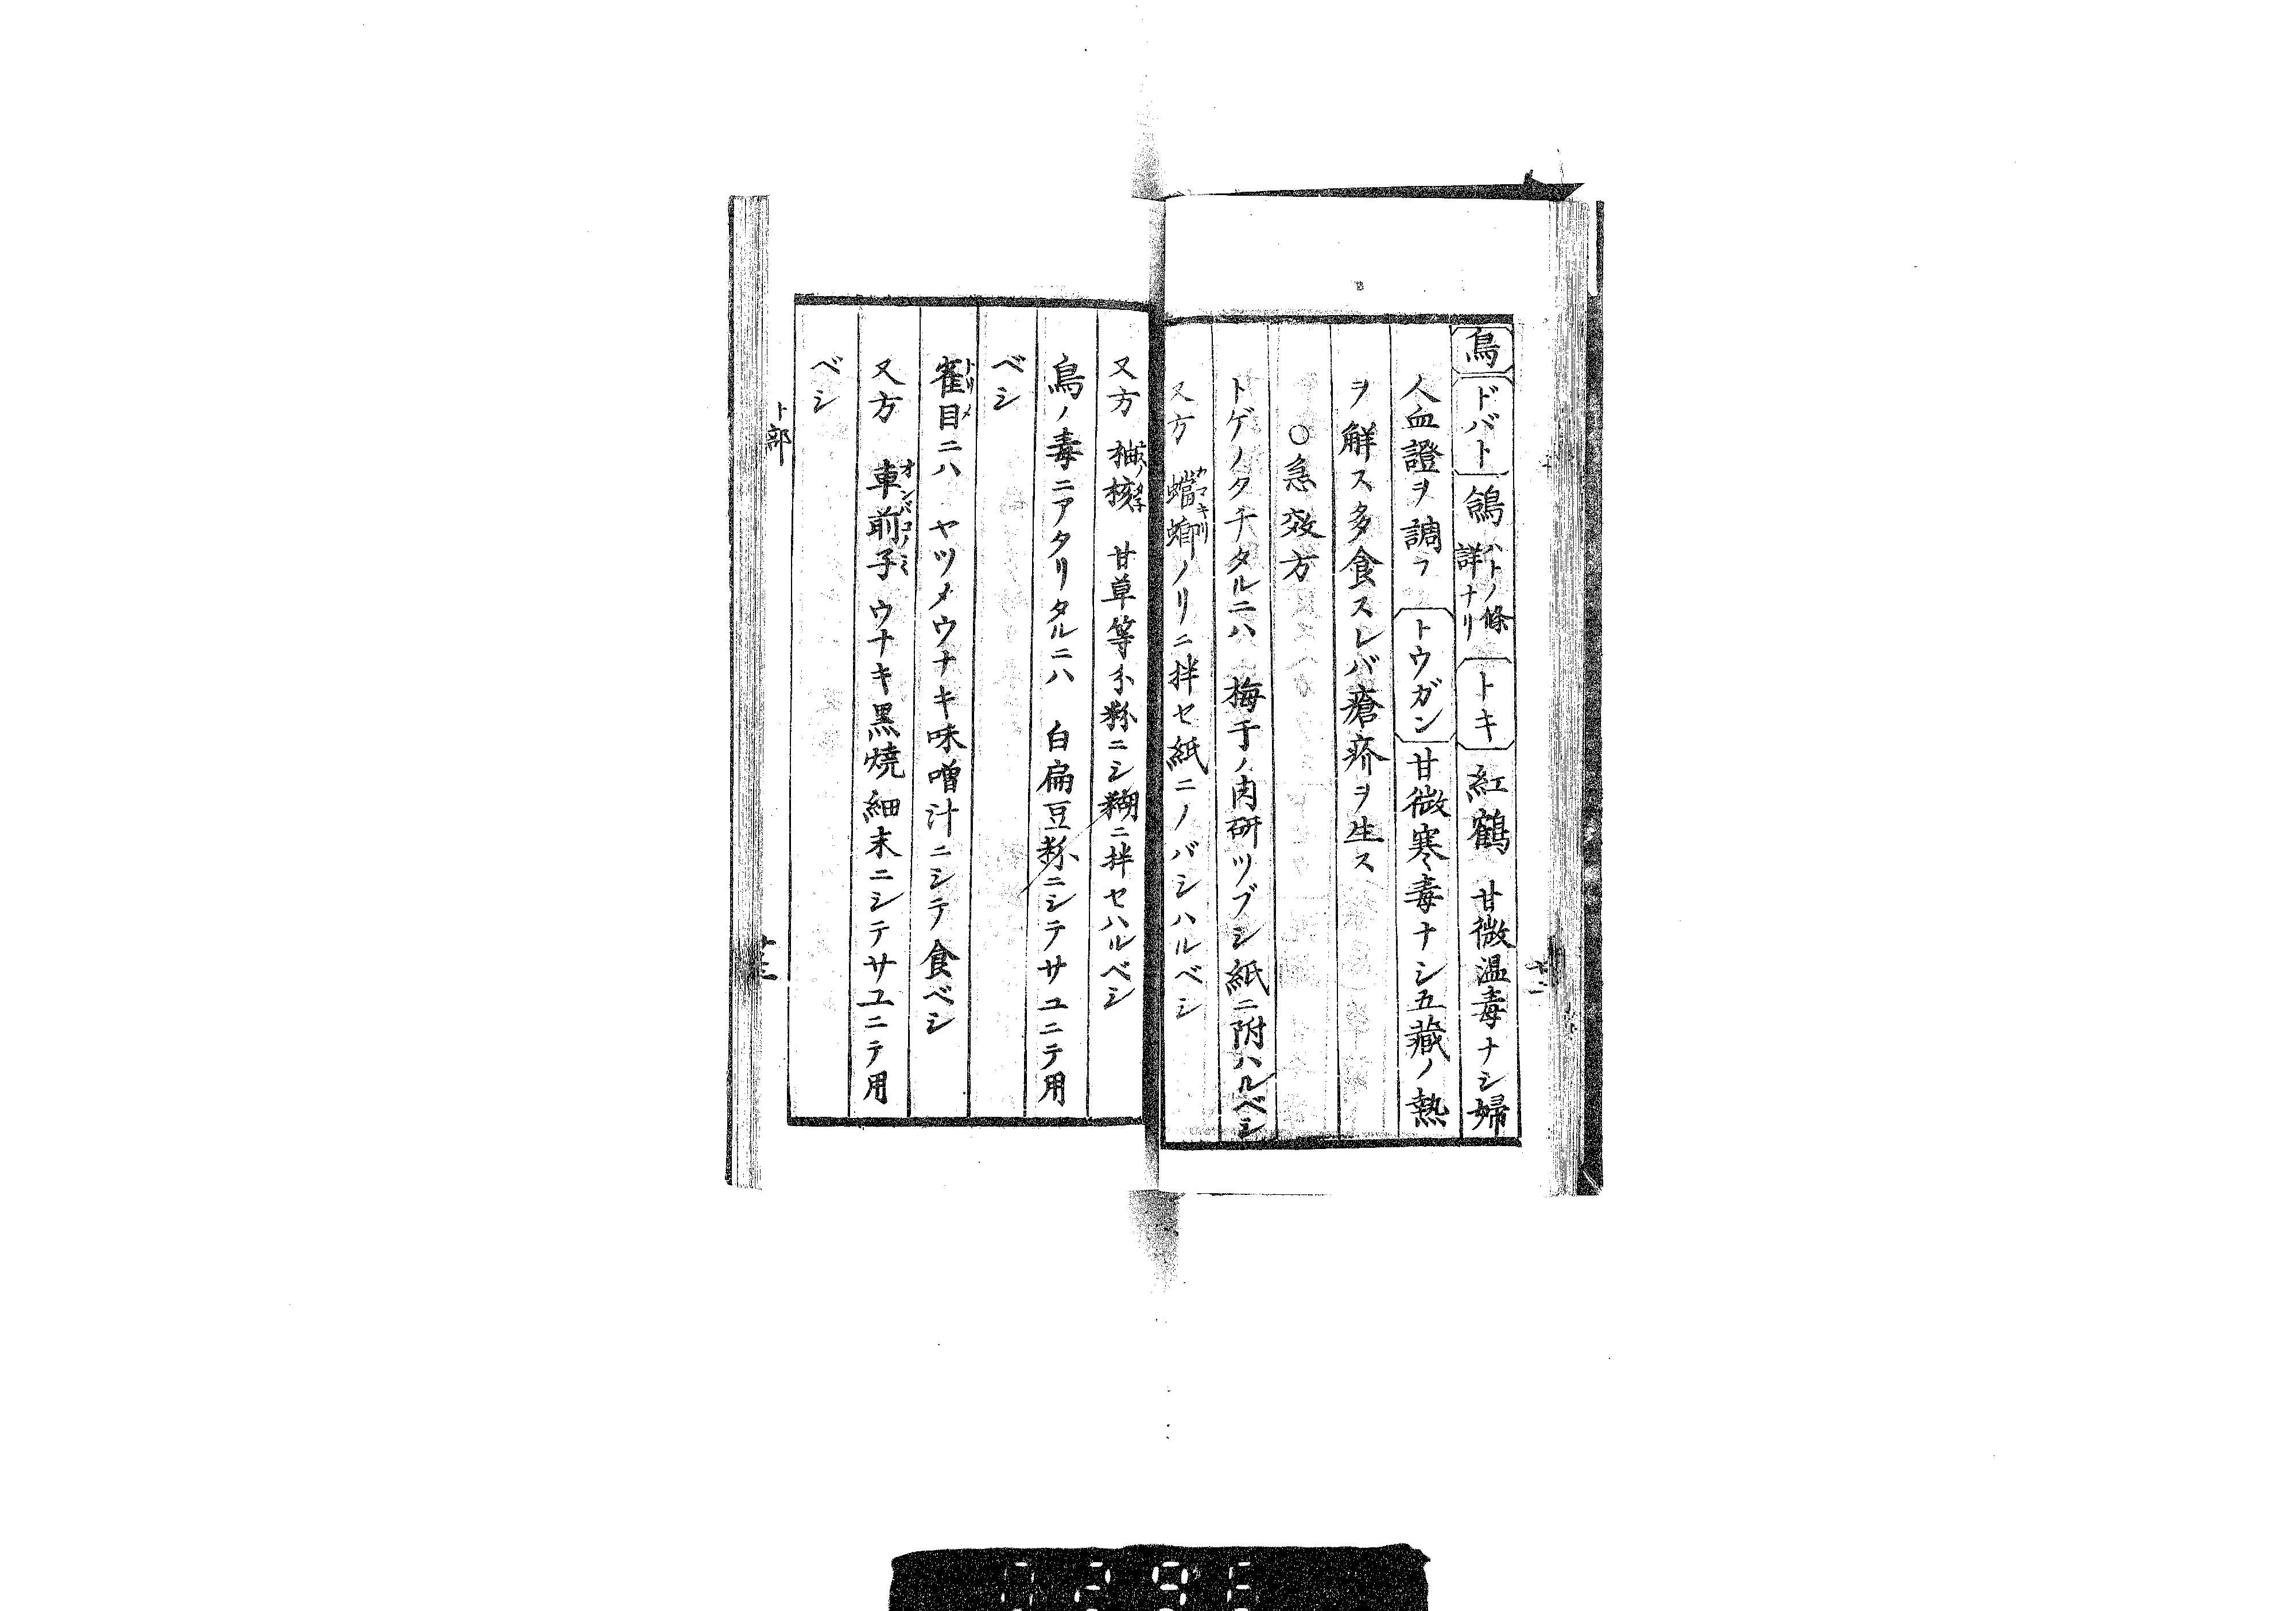 鳥 ドバト 鴿 ハトノ條詳ナリ トキ 紅鶴 甘微温毒ナシ婦
人血證ヲ調フ トウガン 甘微寒毒ナシ五藏ノ熱
ヲ解ス多食スレバ瘡疥ヲ生ス
○急效方
トゲノタチタルニハ 梅干ノ肉研ツブシ紙ニ附ハルベシ
又方 蟷螂ノリニ拌セ紙ニノバシハルベシ
カマキリ
又方 柚核 甘草等分粉ニシ糊ニ拌セハルベシ
鳥ノ毒ニアタリタルニハ 白扁豆粉ニシテサユニテ用
ベシ
雀目ニハ ヤツメウナキ味噌汁ニシテ食ベシ
トリメ
又方 車前子 ウナキ黒焼細末ニシテサユニテ用
オンバコノミ
ベシ
ト部